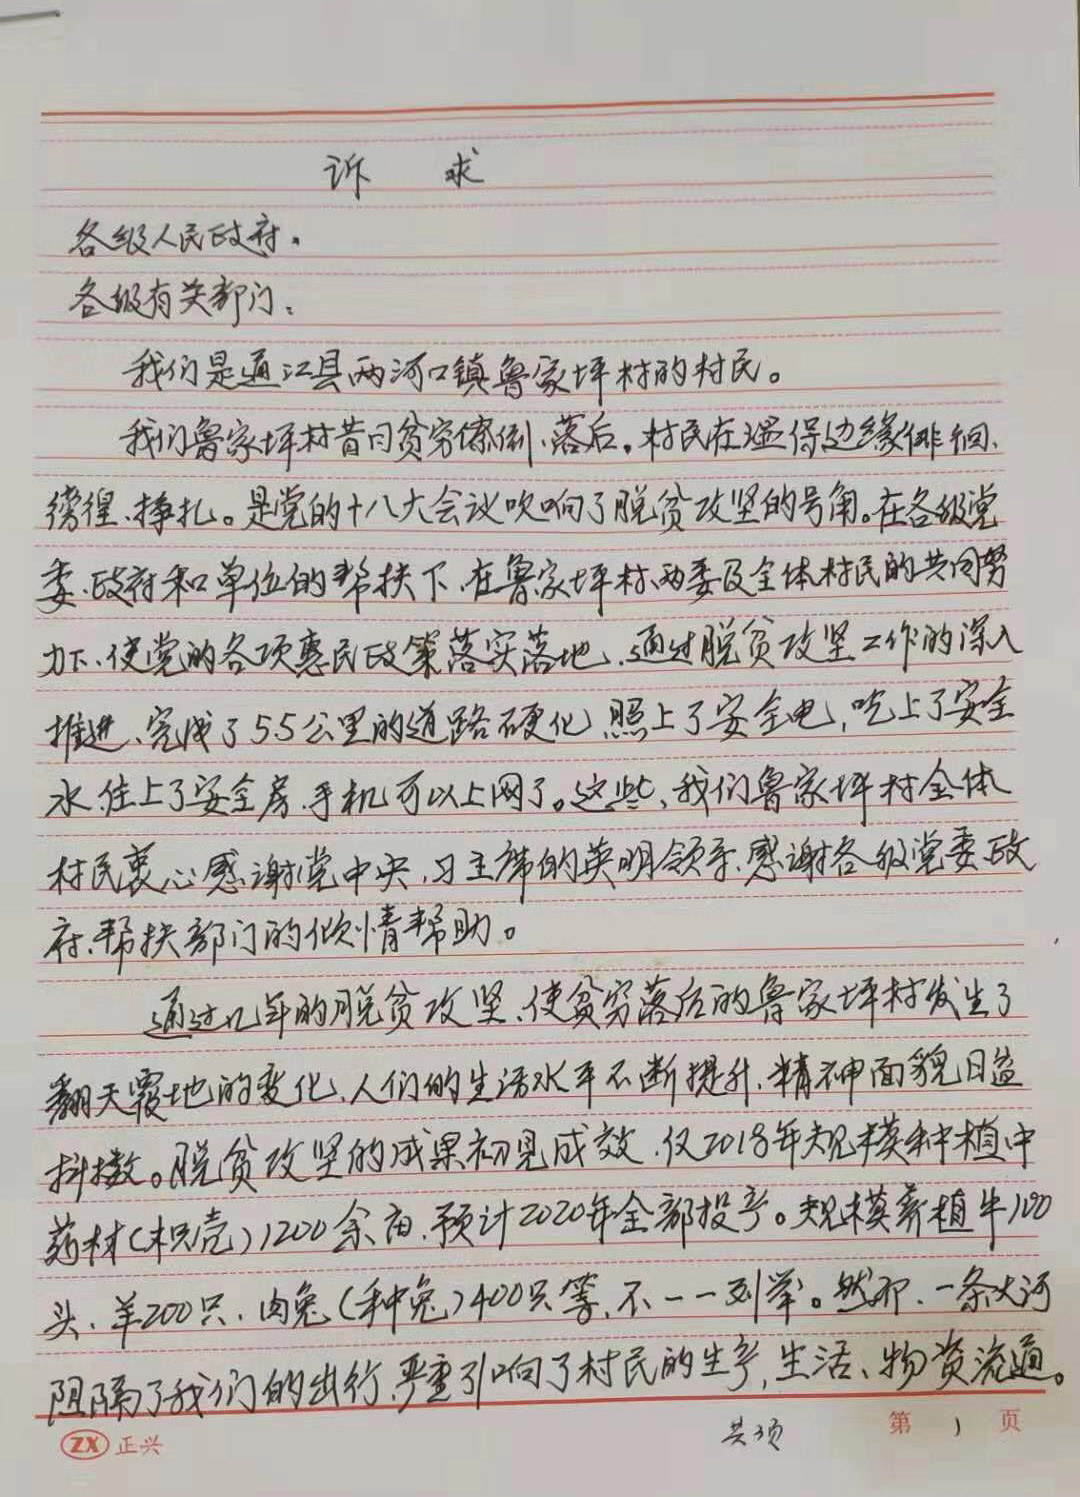 诉 求
各级人民政府。
各级有关部门：
我们是通江县两河口镇鲁家坪村的村民。
我们鲁家坪村昔日贫穷潦倒、落后。村民在温保边缘徘徊、
徬徨、挣扎。是党的十八大会议吹响了脱贫攻坚的号角。在各级党
委、政府和单位的帮扶下、在鲁家坪村两委及全体村民的共同努
力下、使党的各项惠民政策落实落地、通过脱贫攻坚工作的深入
推进、完成了55公里的道路硬化、照上了安全电，吃上了安全
水住上了安全房、手机可以上网了。这些，我们鲁家坪村全体
村民衷心感谢党中央、习主席的英明领导、感谢各级党委、政
府、帮扶部门的倾情帮助。
通过几年的脱贫攻坚、使贫穷落后的鲁家坪村发生了
翻天覆地的变化、人们的生活水平不断提升、精神面貌日益
抖擞。脱贫攻坚的成果初见成效、仅2018年规模种植中
药材（枳壳）1200余亩、预计2020年全部投产。规模养植牛100
头、羊200只、肉兔（种兔）400只等、不一一列举。然而、一条大河
阻隔了我们的出行、严重引响了村民的生产，生活、物资流通。
ZX 正兴 共3页 第 1 页